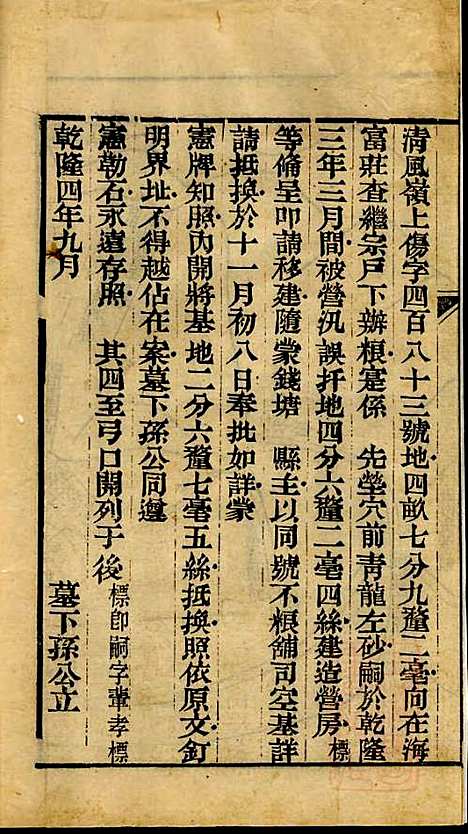 清風嶺上傷字四百八十三號地四畝七分九釐二毫向在海
富莊查繼宗戶下辦粮寔係　先塋穴前靑龍左砂嗣於乾隆
三年三月間被營汛　誤扦地四分六釐二毫四絲建造營房標
等僃呈叩請移建隨蒙錢塘　縣主以同號不粮舖司空基詳
請抵換於十一月初八日奉批如詳蒙
憲牌知照內開將基地二分六釐七毫五絲抵換照依原文釘
明界址不得越佔在案墓下孫公同遵
憲勒石永遠存照　其四至弓口開列于後標卽嗣字輩孝標
乾隆四年九月　　　　　　　　　墓下孫公立